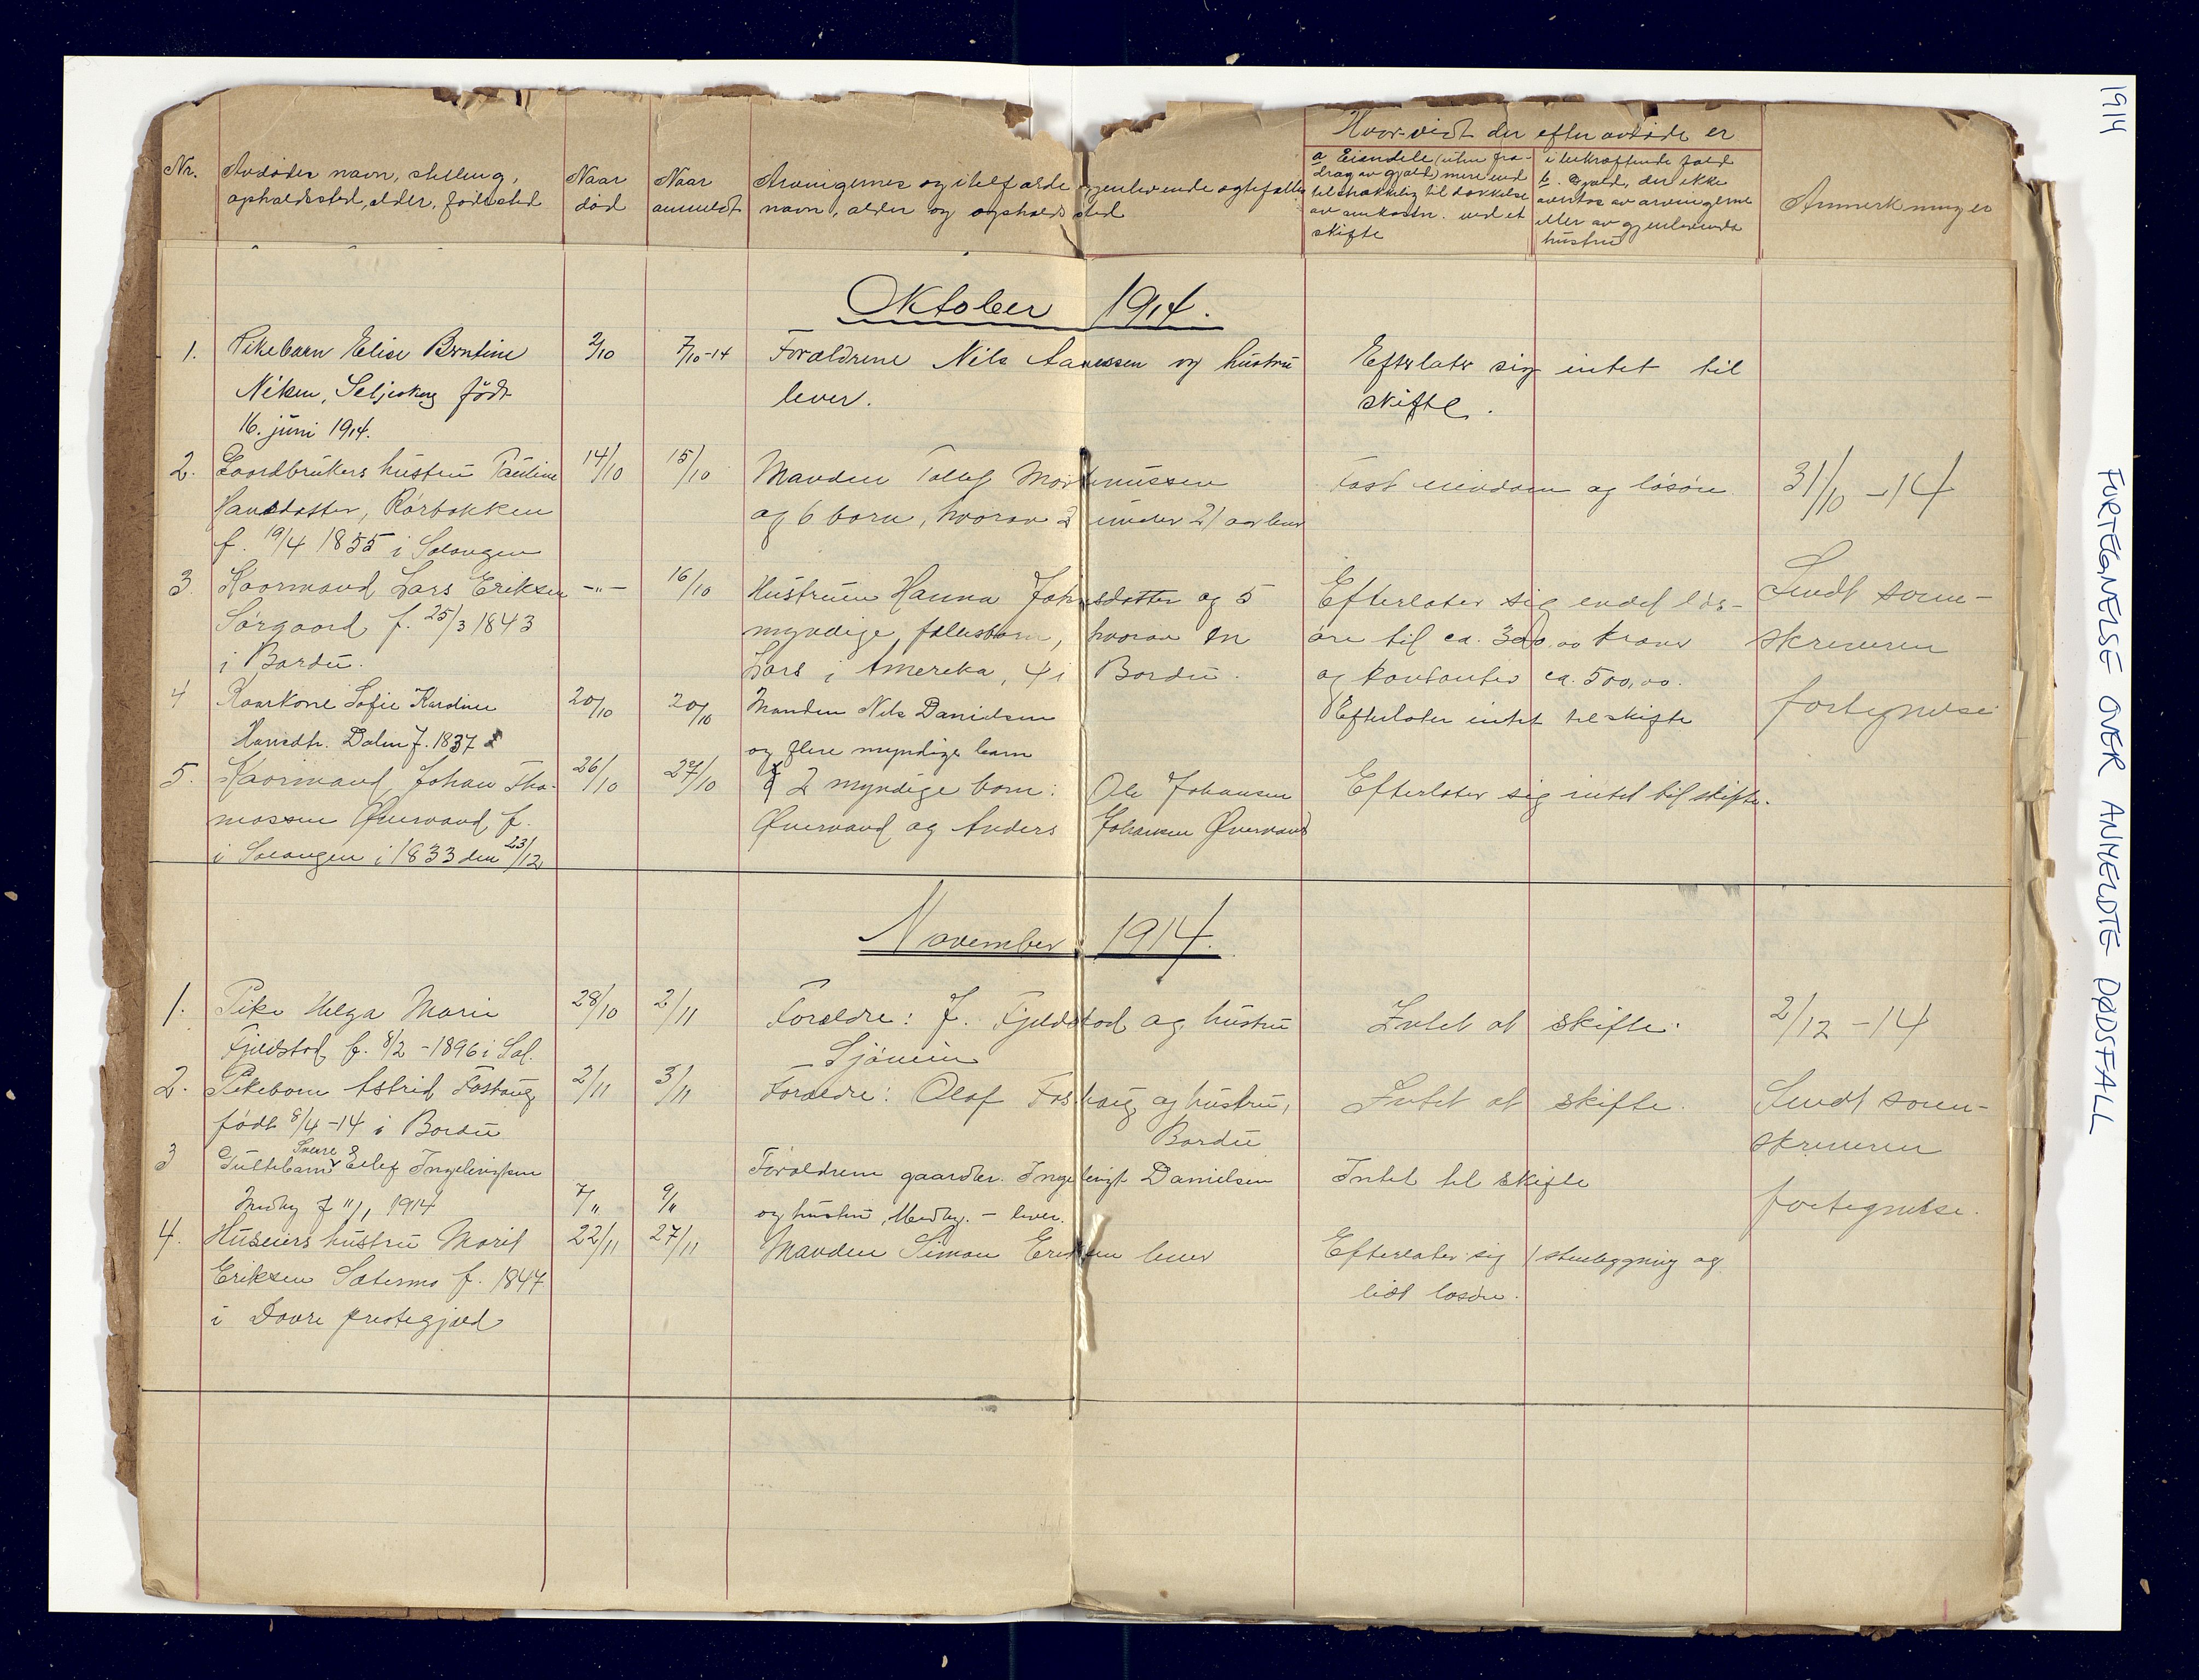 1914
FORTEGNELSE OVER ANMELDTE DØDSFALL
Nr.
Avdødes navn, stilling,
opholdssted, alder, fødested
Naar
død
Naar
anmeldt
Arvingernes og i tilfælde gjenlevende ægtefælles
navn, alder og opholdssted
Hvorvidt der efter avdøde er
a Eiendele (uten fra-
drag av gjæld) mere end
tilstrækkelig til dækkelse
av omkostn. ved et
skifte
i bekræftende fald
b. Gjæld, der ikke
overtas av arvingerne
eller av gjenlevende
hustru
Anmerkninger
Oktober 1914.
1. Pikebarn Elise Berntine 2/10 7/10-14 Forældrene Nils Aanessen og hustru Efterlater sig intet til
Nilsen, Seljeskog født lever. skifte.
16. juni 1914.
2. Gaardbrukers hustru Pauline 14/10 15/10 Manden Tollef Mortinussen Fast eiendom og løsøre 31/10 -14
Hansdatter, Rørbakken og 6 born, hvorav 2 under 21 aar lever
f. 19/4 1855 i Salangen
3 Kaarmand Lars Eriksen -"- 16/10 Hustruen Hanna Johnsdatter og 5 Efterlater sig endel løs- Sendt soren-
Sørgaard f. 25/3 1843 myndige fællesbarn, hvorav en øre til ca. 300,00 kroner skriveren
i Bardu. Lars i Amerika, 4 i Bardu. og kontanter ca. 500,00. fortegnelse
4 Kaarkone Sofie Karoline 20/10 20/10 Manden Nils Danielsen Efterlater intet til skifte
Hansdtr. Dalen f. 1837 og flere myndige barn
5. Kaarmand Johan Tho- 26/10 27/10 2 myndige born: Ole Johansen Efterlater sig intet til skifte.
massen Øvervand f. Øvervand og Anders Johansen Øvervand
i Salangen i 1833 den 23/12
November 1914.
1. Pike Helga Marie 28/10 2/11 Forældre: J. Fjeldstad og hustru Intet at skifte. 2/12 -14
Fjeldstad f. 8/2 -1896 i Sal. Sjøvein
2. Pikebarn Astrid Foshaug 2/11 3/11 Forældre: Olaf Foshaug og hustru, Intet at skifte. Sendt soren-
født 8/4 -14 i Bardu Bardu skriveren
3 Guttebarn Sverre Eilef Ingebrigtsen Forældrene gaardbr. Ingebrigt Danielsen Intet til skifte fortegnelse.
Medby f 1914 7/11 9/11 og hustru, Medby. - lever.
4. Huseiers hustru Marit 22/11 27/11 Manden Simon Eriksen lever Efterlater sig 1 stuebygning og
Eriksen Sætermo f. 1847 lidt løsøre.
i Dovre prestegjæld